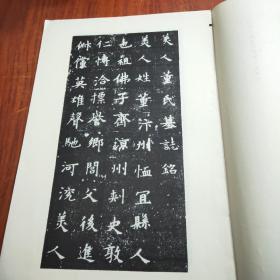 美人董氏墓誌銘
美人姓董汴州恤宜縣人
也祖佛子齊涼州刾史敦
仁博洽標譽鄉閭父後進
俶儻英雄聲馳河渷美人